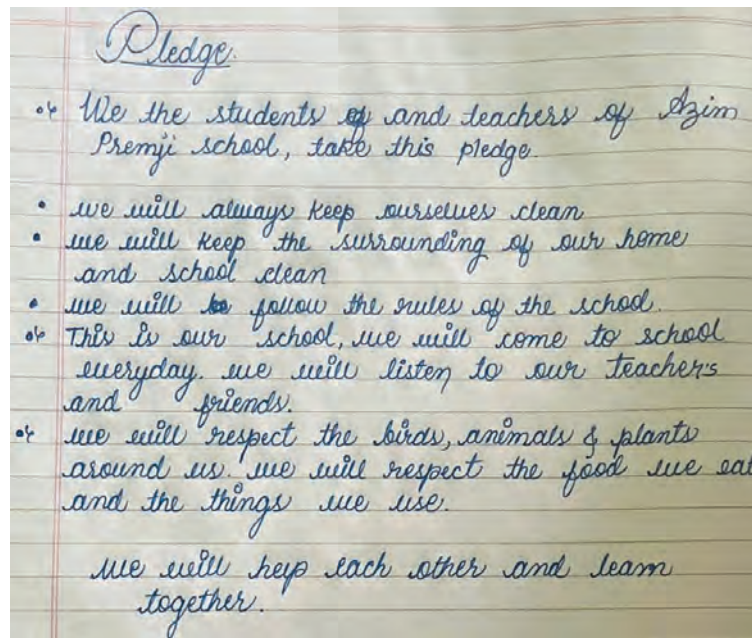 Pledge.
We the students and teachers of Azim
Premji school, take this pledge.
• we will always keep ourselves clean
• we will keep the surrounding of our home
and school clean
• we will follow the rules of the school.
This is our school, we will come to school
everyday. we will listen to our teacher's
and friends.
we will respect the birds, animals & plants
around us. we will respect the food we eat
and the things we use.
we will hep each other and learn
together.